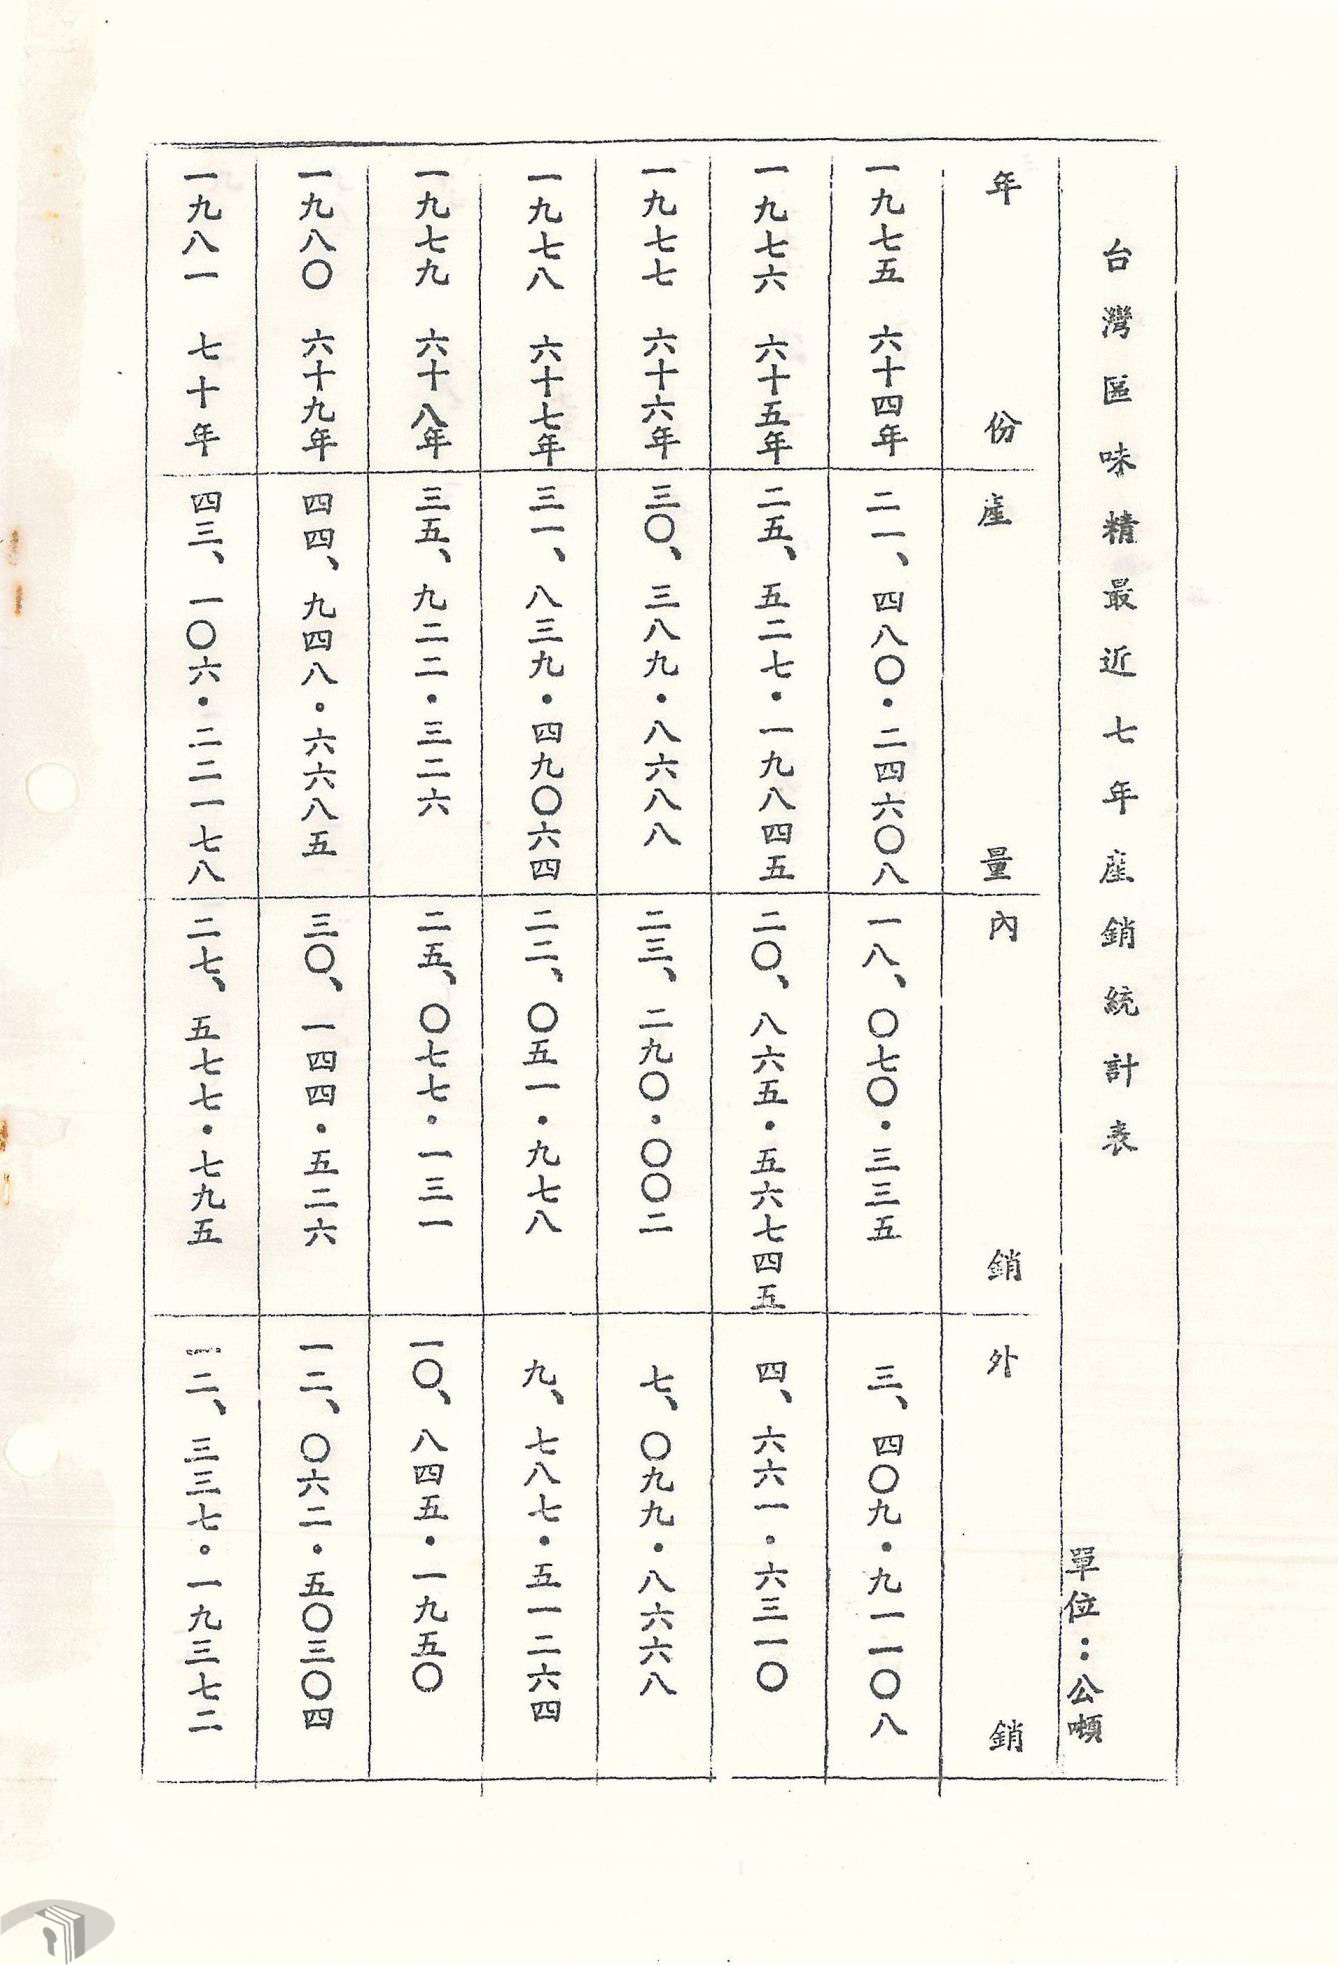 台灣區味精最近七年產銷統計表
單位：公噸
年份
產量
內銷
外銷
一九七五 六十四年
二一、四八〇・二四六〇八
一八、〇七〇・三三五
三、四〇九・九一一〇八
一九七六 六十五年
二五、五二七・一九八四五
二〇、八六五・五六七四五
四、六六一・六三一〇
一九七七 六十六年
三〇、三八九・八六八八
二三、二九〇・〇〇二
七、〇九九・八六六八
一九七八 六十七年
三一、八三九・四九〇六四
二二、〇五一・九七八
九、七八七・五一二六四
一九七九 六十八年
三五、九二二・三二六
二五、〇七七・一三一
一〇、八四五・一九五〇
一九八〇 六十九年
四四、九四八・六六八五
三〇、一四四・五二六
一二、〇六二・五〇三〇四
一九八一 七十年
四三、一〇六・二二一七八
二七、五七七・七九五
一二、三三七・一九三七二